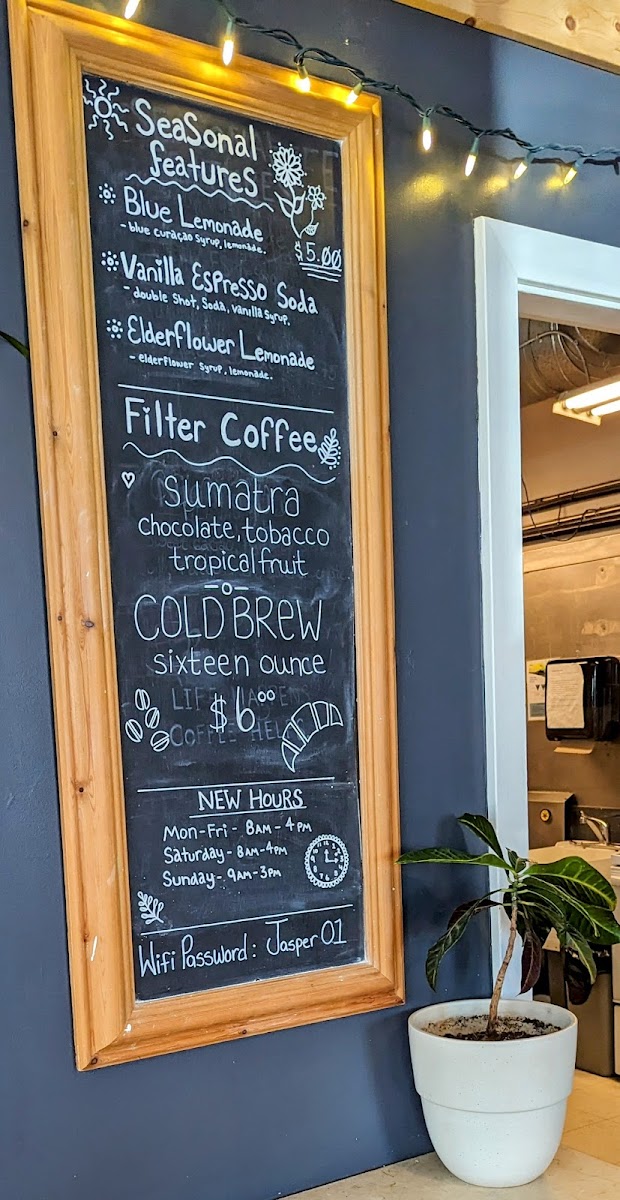 Seasonal
features
Blue Lemonade
- blue curaçao syrup, lemonade.
$5.00
Vanilla Espresso Soda
- double shot, soda, vanilla syrup.
Elderflower Lemonade
- elderflower syrup, lemonade.
Filter Coffee
sumatra
chocolate, tobacco
tropical fruit
COLD BREW
sixteen ounce
$6.00
NEW HOURS
Mon-Fri - 8AM - 4PM
Saturday - 8AM-4PM
Sunday - 9AM-3PM
Wifi Password: Jasper01